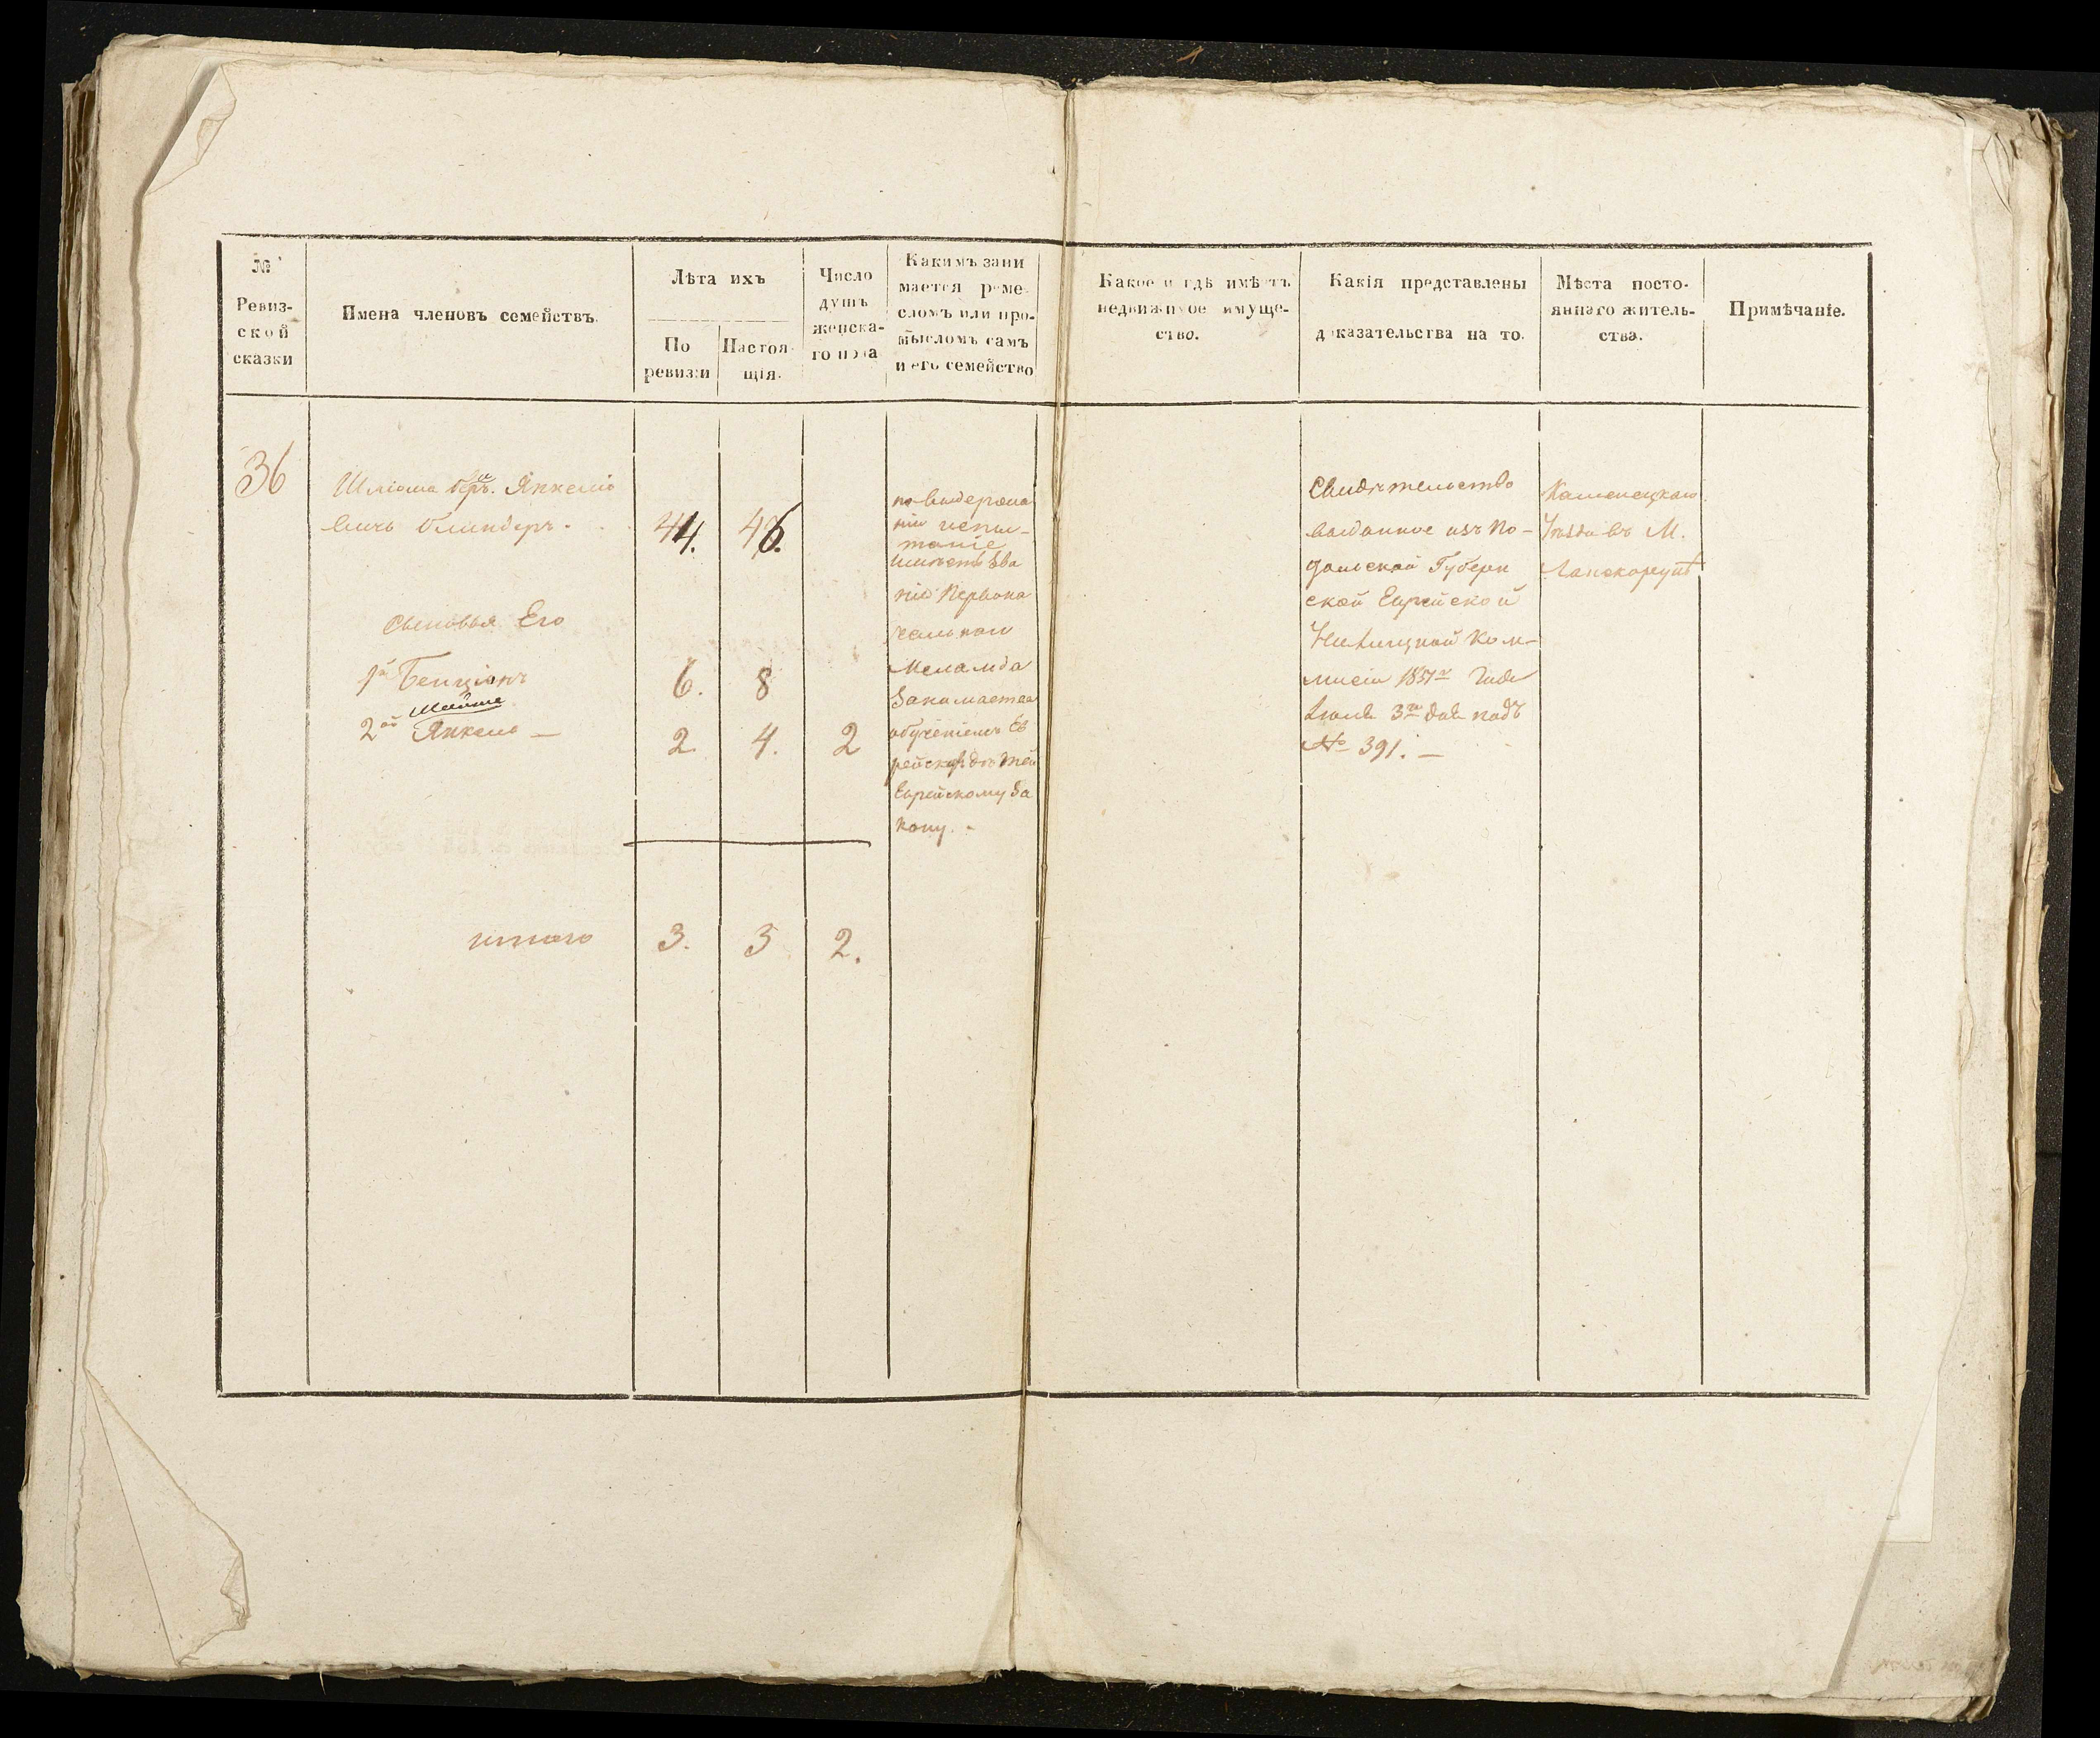 №
Ревиз-
ской
сказки
Имена членовъ семействъ.
Лѣта ихъ
По
ревизіи
Настоя-
щія.
Число
душъ
женска-
го пола
Какимъ зани
мается реме-
сломъ или про-
мысломъ самъ
и его семейство
Какое и гдѣ имѣетъ
недвижимое имуще-
ство.
Какія представлены
доказательства на то.
Мѣста посто-
яннаго житель-
ства.
Примѣчаніе.
36
Шліома Янкеліо
вичъ
44.
46.
Сыновья Его
1й Бенціонъ
6.
8
Мойше
2ой Янкель —
2
4.
2
по выдержа
ніи испы-
таніе
имѣетъ Зва
ніе Первона
чальнаго
Меламда
Занимается
обученіемъ Ев
рейскихъ дѣтей
Еврейскому За
кону. -
Свидѣтельство
выданное изъ По-
дольской Губерн
ской Еврейской
Ком-
мисіи 1851го Года
Іюля 3го дня подъ
№ 391. —
Каменецкаго
Уѣзда въ М.
Ланскорунѣ
итого
3.
3
2.